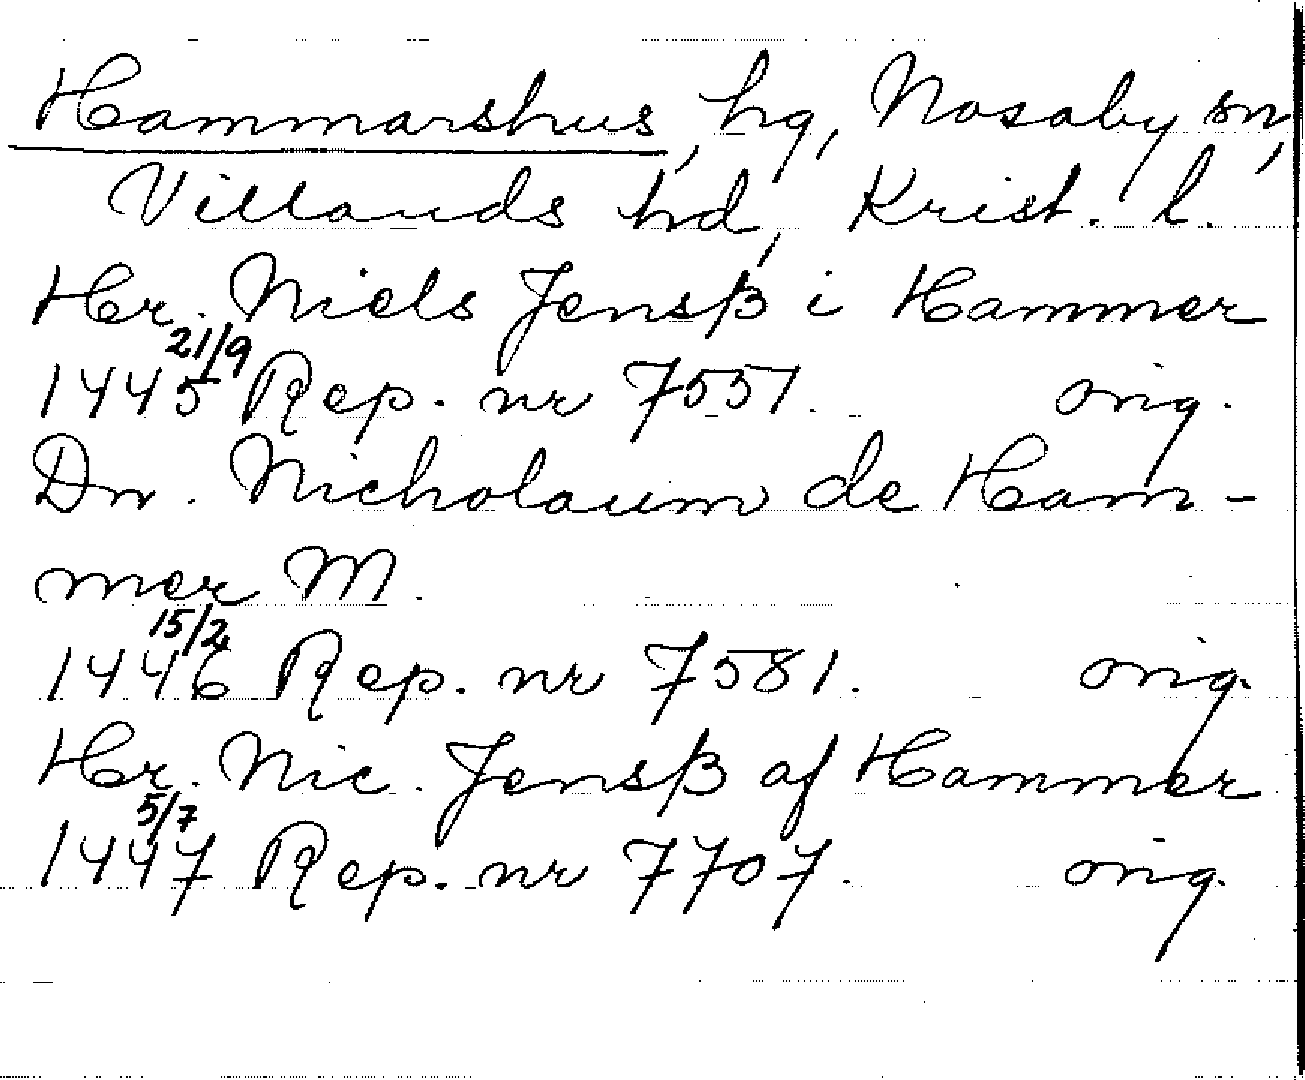 Hammarshus, hg, Nosaby sn,
Villands hd, Krist. l.
Hr. Niels Jensß i Hammer
1445 21/9 Rep. nr 7551. orig.
Dn. Nicholaum de Ham-
mer M.
1446 15/2 Rep. nr 7581. orig.
Hr. Nic. Jensß af Hammer
1447 5/7 Rep. nr 7707. orig.